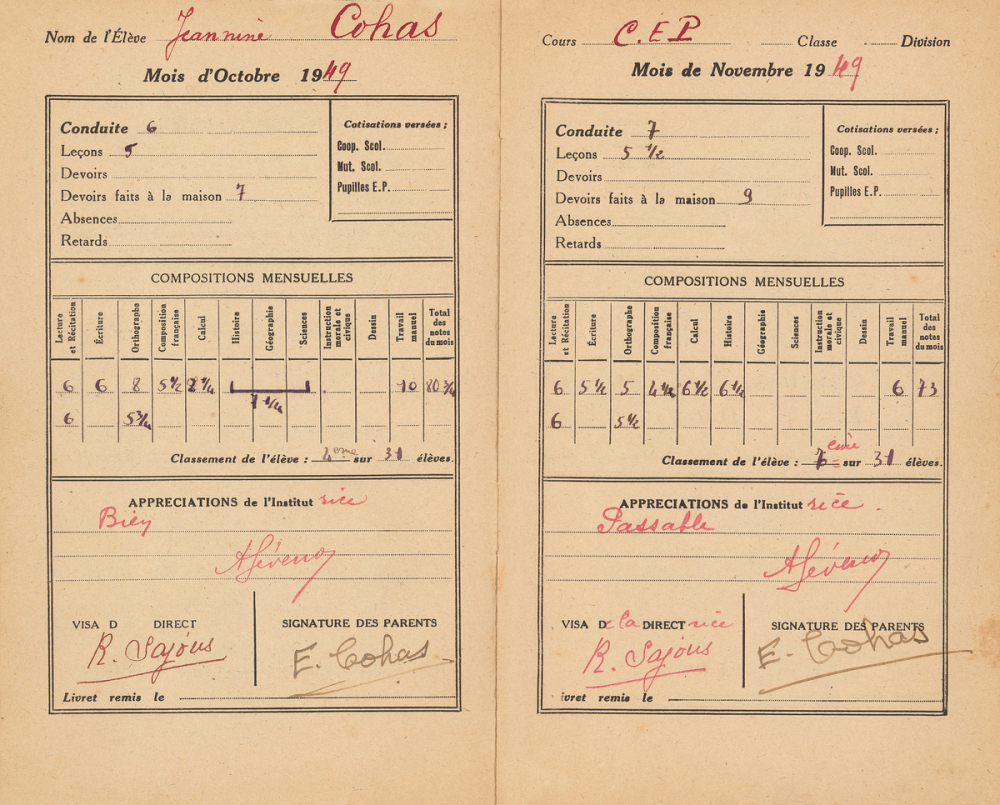 Nom de l'Élève Jeannine Cohas
Mois d'Octobre 1949
Conduite 6
Leçons 5
Devoirs
Devoirs faits à la maison 7
Absences
Retards
Cotisations versées ;
Coop. Scol.
Mut. Scol.
Pupilles E.P.
COMPOSITIONS MENSUELLES
Lecture et Récitation Écriture Orthographe Composition française Calcul Histoire Géographie Sciences Instruction morale et civique Dessin Travail manuel Total des notes du mois
6 6 8 5 1/2 7 1/4 10 80 3/4
6 5 3/4
Classement de l'élève : 4eme sur 31 élèves.
APPRECIATIONS de l'Institutrice
Bien
VISA D DIRECT
R. Sajous
SIGNATURE DES PARENTS
E. Cohas
Livret remis le
Cours C.E.P Classe Division
Mois de Novembre 1949
Conduite 7
Leçons 5 1/2
Devoirs
Devoirs faits à la maison 9
Absences
Retards
Cotisations versées ;
Coop. Scol.
Mut. Scol.
Pupilles E.P.
COMPOSITIONS MENSUELLES
Lecture et Récitation Écriture Orthographe Composition française Calcul Histoire Géographie Sciences Instruction morale et civique Dessin Travail manuel Total des notes du mois
6 5 1/2 5 6 1/2 6 1/4 6 73
6 5 1/2
Classement de l'élève : 7eme sur 31 élèves.
APPRECIATIONS de l'Institutrice.
Passable
VISA De la DIRECTrice
R. Sajous
SIGNATURE DES PARENTS
E. Cohas
ivret remis le